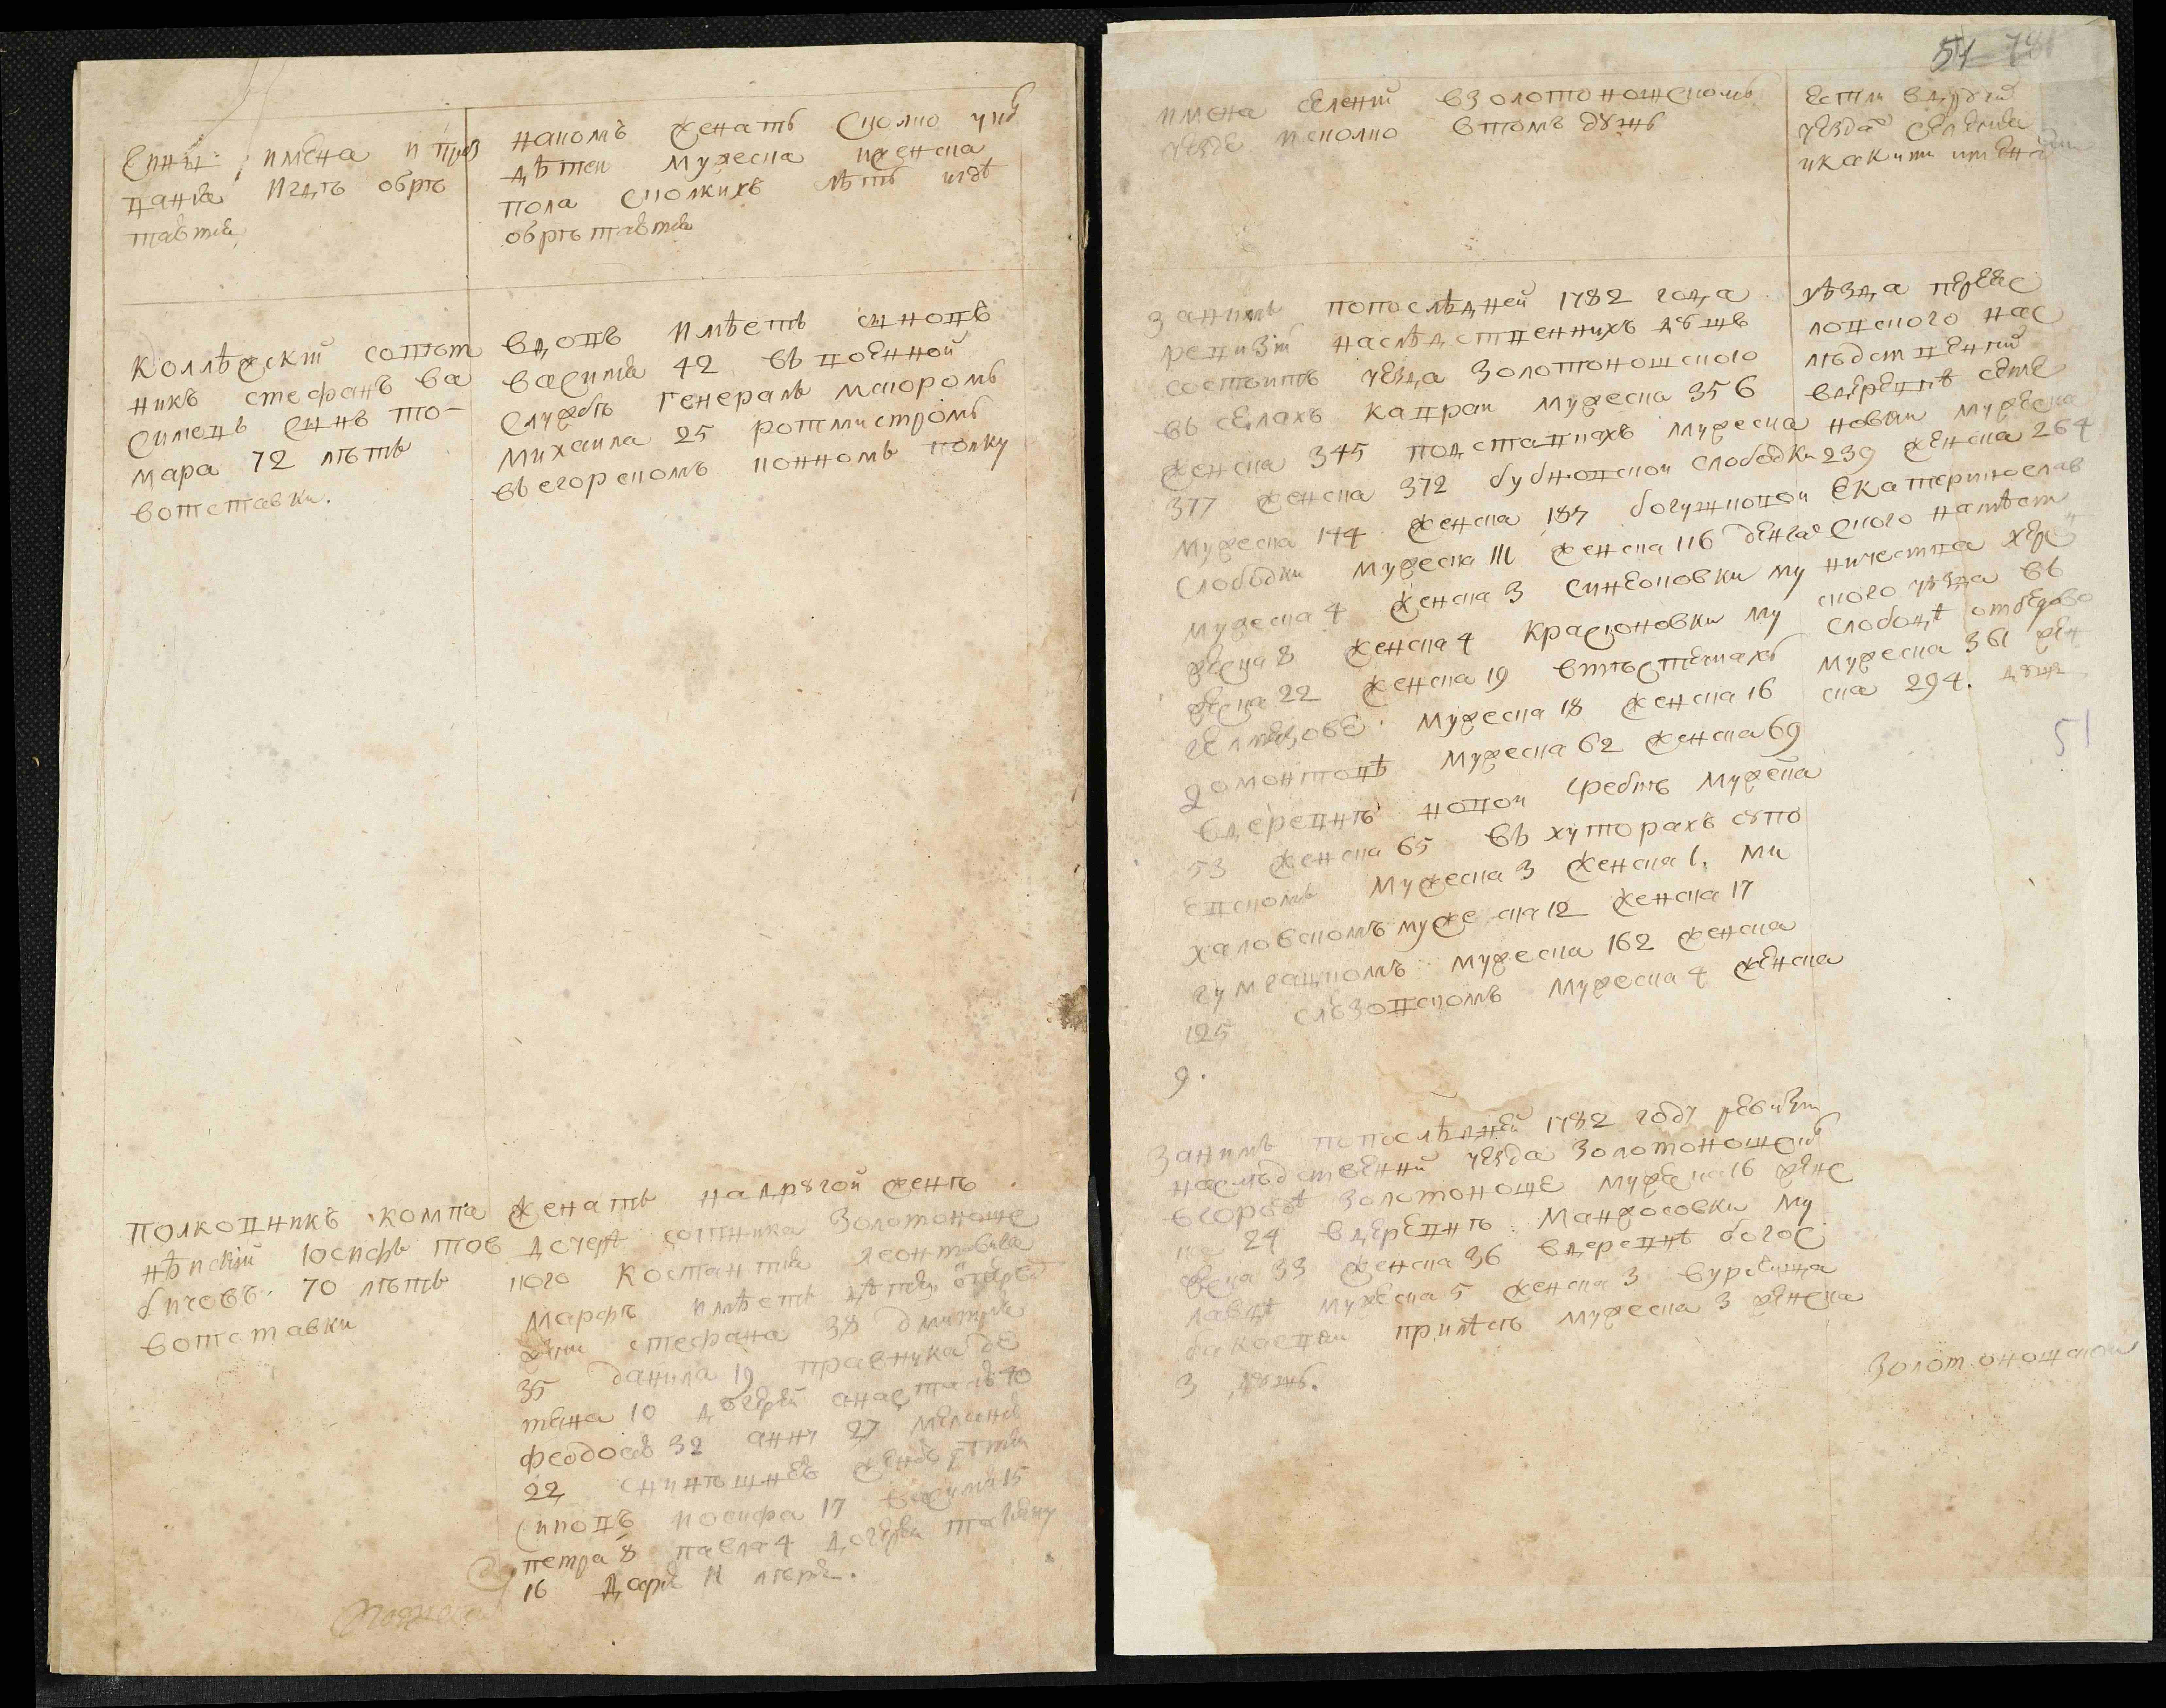 Чины имена и проз
вания и гдѣ обрѣ
таются
на комъ женатъ сколко у них
дѣтей мужеска и женска
пола сколкихъ лѣтъ и гдѣ
обрѣтаются
Коллѣжский совѣт
никъ стефанъ ва
силиевъ синъ то-
мара 72 лѣтъ
вотставки.
вдовъ имѣетъ синовъ
василия 42 въ военной
службѣ генералъ маиоромъ
михаила 25 ротмистромъ
въ егорскомъ конномъ полку
полковникъ компа
нѣйский иосифъ тов
бичевъ 70 лѣтъ
вотставки
женатъ на другой женѣ
дочерѣ сотника Золотоноше
кого Костантия леонтовича
марфѣ имѣетъ дѣтей отперво
жени стефана 38 дмитрия
35 данила 19 правнука де
10 дочерей анастасию 40
феодосию 32 анну 27
22 снинѣшнею женою дѣтей
синовъ иосифа 17 василия 15
петра 8 павла 4 дочерей татияну
16 дарию 11 лѣтъ.
51
имена селений взолотоношскомъ
уезде исколко втомъ душъ
естли вдругий
уездах селения
икакими имена
за нимъ попослѣдней 1782 года
ревизий наслѣдственнихъ душъ
состоитъ уезда Золотоношского
въ селахъ каврай мужеска 356
женска 345 подставкахъ мужеска
377 женска 372 бубновской слободки
мужеска 144 женска 187 богушковой
слободки мужеска 111 женска 116
мужеска 4 женска 3 синеоковки му
жеска 8 женска 4 красюновки му
жеска 22 женска 19 вмѣстечкахъ
гелмязове мужеска 18 женска 16
домонтовѣ мужеска 62 женска 69
вдеревнѣ новой гребли мужеска
53 женска 65 въ хуторахъ супо
евскомъ мужеска 3 женска 1. ми
халовскомъ мужеска 12 женска 17
чумгацкомъ мужеска 162 женска
125 слезовскомъ мужеска 4 женска
9.
уѣзда переяс
ловского нас
лѣдственний
вдеревнѣ семе
новки мужеска
239 женска 264
Екатеринослав
ского намѣст
ничества херсо
ского уѣзда въ
слободѣ отбедово
мужеска 361 жен
ска 294. душъ
51
За нимъ попослѣдней 1782 году ревизии
наслѣдственний уезда Золотоношскаго
вгородѣ золотоноше мужеска 16 женс
ка 24 вдеревнѣ Мандюсовки му
жеска 33 женска 36 вдеревнѣ богос
лавцѣ мужеска 5 женска 3
мужеска 3 женска
3 душъ.
Золотоношской